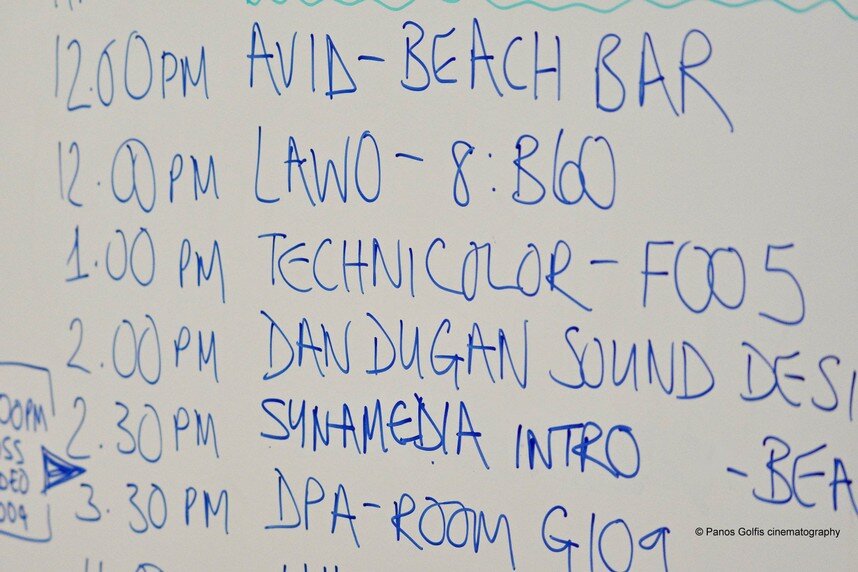 12.00PM AVID - BEACH BAR
12.00PM LAWO - 8:B60
1.00 PM TECHNICOLOR - F005
2.00 PM DAN DUGAN SOUND DESI
2.30 PM SYNAMEDIA INTRO - BEA
3.30 PM DPA - ROOM G109
00PM
SS
DEO
009
© Panos Golfis cinematography